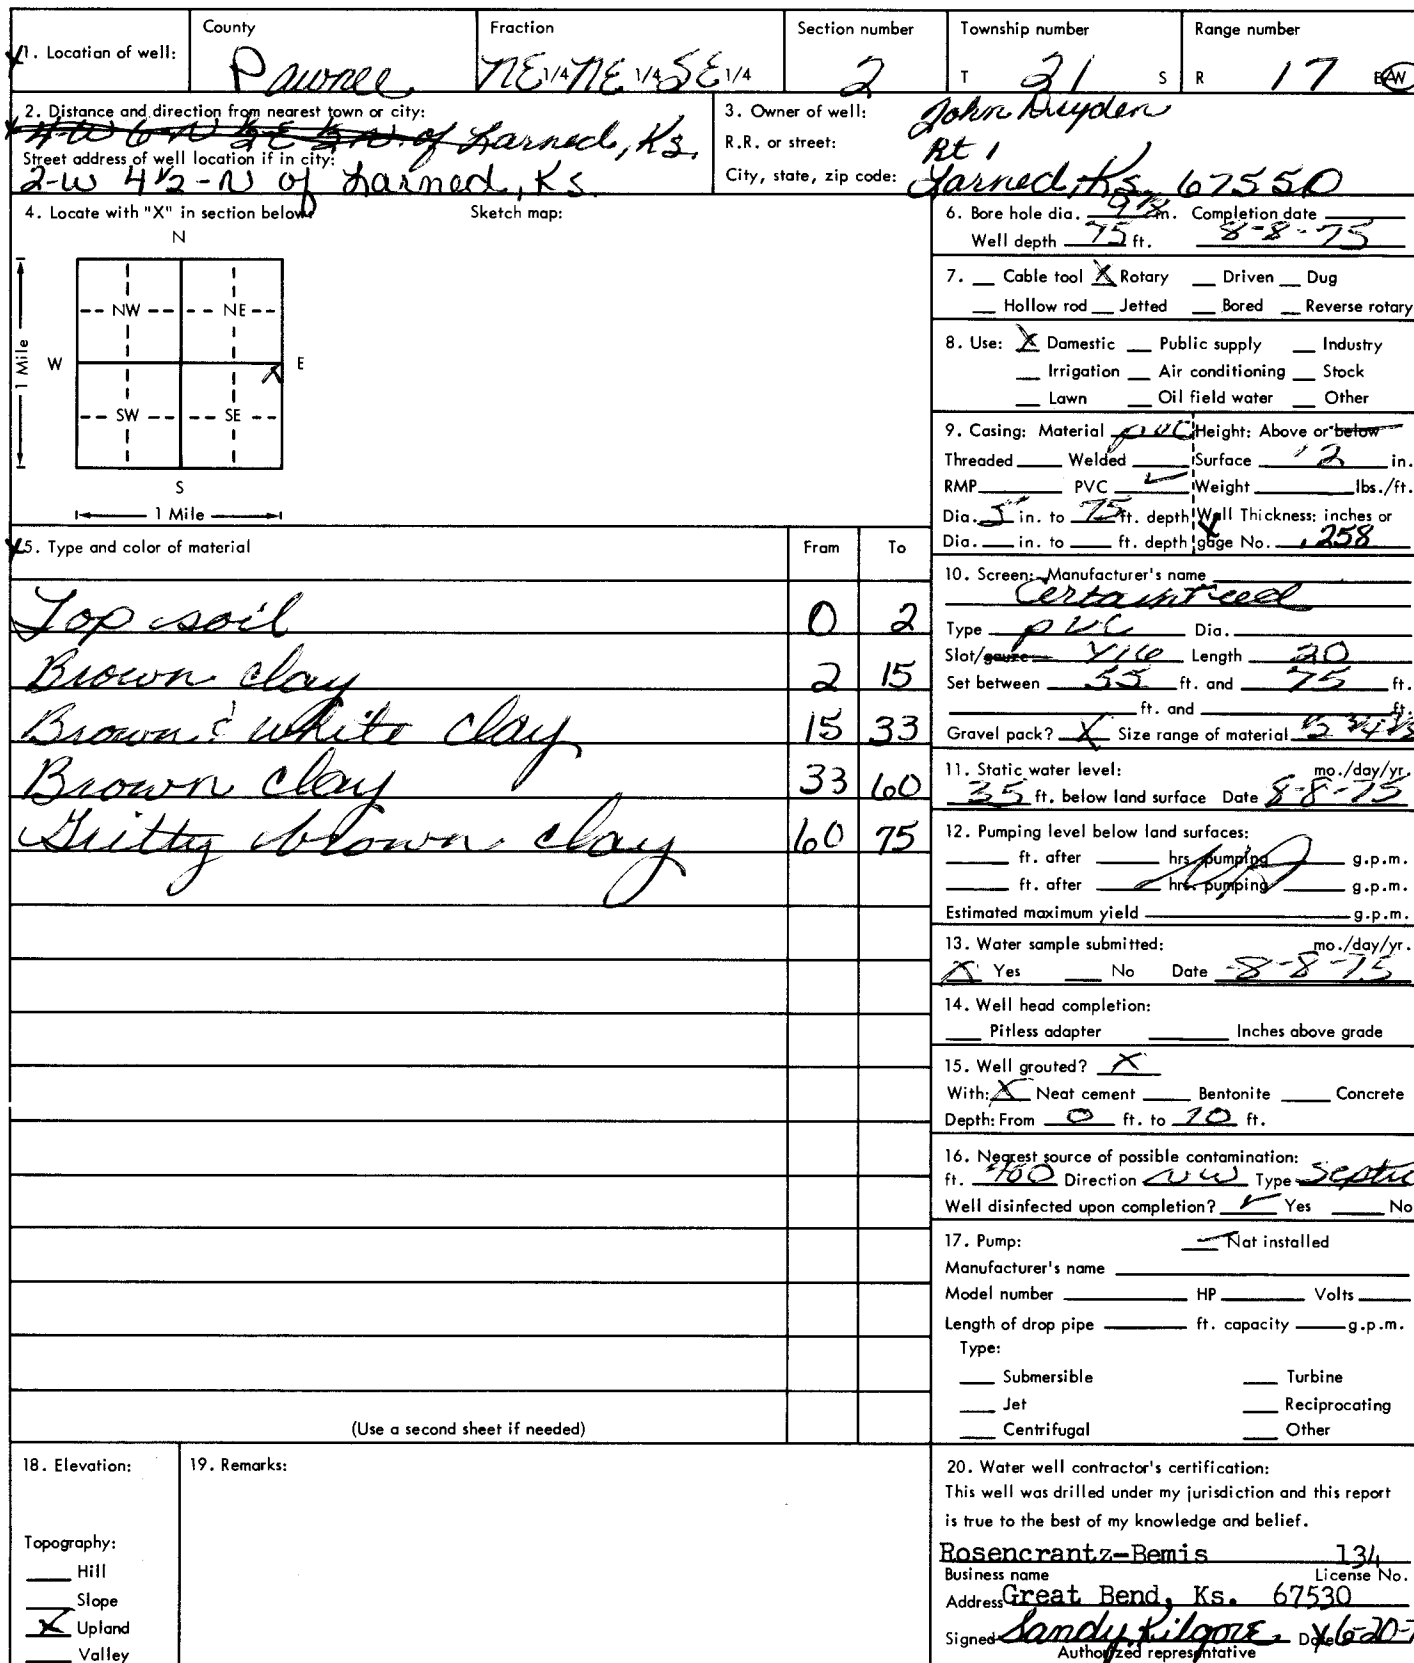 County Fraction Section number Township number Range number
1. Location of well: Pawnee NE 1/4 NE 1/4 SE 1/4 2 T 21 S R 17 E W
2. Distance and direction from nearest town or city:
4-W 6-N of Larned, Ks.
Street address of well location if in city:
2-W 4 1/2-N of Larned, Ks.
3. Owner of well: John Dryden
R.R. or street: Rt 1
City, state, zip code: Larned, Ks. 67550
4. Locate with "X" in section below: Sketch map:
N
NW NE
W X E
SW SE
S
1 Mile
1 Mile
5. Type and color of material From To
Top soil 0 2
Brown clay 2 15
Brown & white clay 15 33
Brown clay 33 60
Gritty brown clay 60 75
(Use a second sheet if needed)
6. Bore hole dia. in. Completion date
Well depth 75 ft. 8-8-75
7. Cable tool X Rotary Driven Dug
Hollow rod Jetted Bored Reverse rotary
8. Use: X Domestic Public supply Industry
Irrigation Air conditioning Stock
Lawn Oil field water Other
9. Casing: Material PVC Height: Above or below
Threaded Welded Surface in.
RMP PVC ✓ Weight lbs./ft.
Dia. 5 in. to 75 ft. depth Wall Thickness: inches or
Dia. in. to ft. depth gage No. .258
10. Screen: Manufacturer's name
Certainteed
Type PVC Dia.
Slot/gauze 1/16 Length 20
Set between 55 ft. and 75 ft.
ft. and ft.
Gravel pack? X Size range of material
11. Static water level: mo./day/yr.
35 ft. below land surface Date 8-8-75
12. Pumping level below land surfaces:
ft. after hrs. pumping g.p.m.
ft. after hrs. pumping g.p.m.
Estimated maximum yield g.p.m.
13. Water sample submitted: mo./day/yr.
X Yes No Date 8-8-75
14. Well head completion:
Pitless adapter Inches above grade
15. Well grouted? X
With: X Neat cement Bentonite Concrete
Depth: From 0 ft. to 10 ft.
16. Nearest source of possible contamination:
ft. Direction NW Type Septic
Well disinfected upon completion? ✓ Yes No
17. Pump: ✓ Not installed
Manufacturer's name
Model number HP Volts
Length of drop pipe ft. capacity g.p.m.
Type:
Submersible Turbine
Jet Reciprocating
Centrifugal Other
18. Elevation:
Topography:
Hill
Slope
X Upland
Valley
19. Remarks:
20. Water well contractor's certification:
This well was drilled under my jurisdiction and this report
is true to the best of my knowledge and belief.
Rosencrantz-Bemis 134
Business name License No.
Address Great Bend, Ks. 67530
Signed Sandy Kilgore Date 6-20-7
Authorized representative